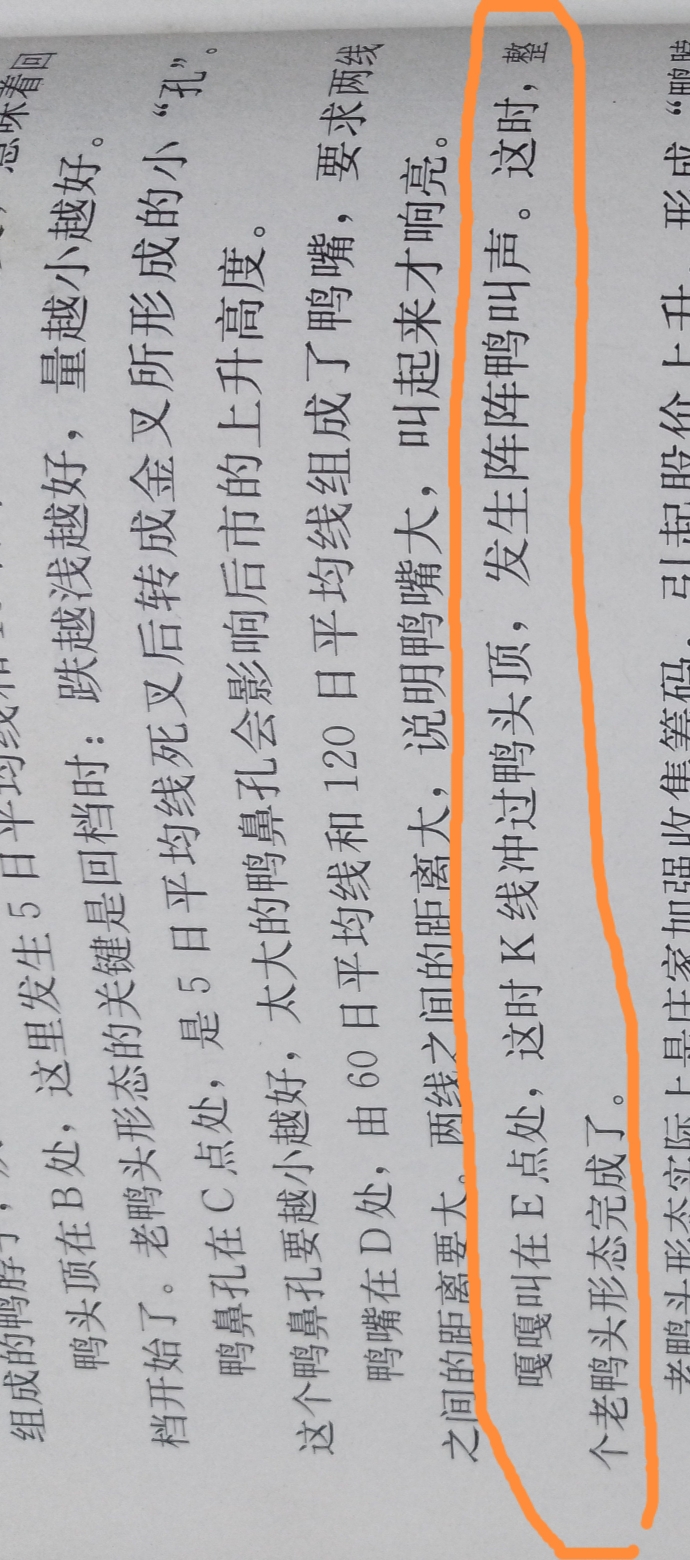 组成的鸭脖子，
鸭头顶在B处，这里发生5日平均线和
档开始了。老鸭头形态的关键是回档时：跌越浅越好，量越小越好。
鸭鼻孔在C点处，是5日平均线死叉后转成金叉所形成的小“孔”。
这个鸭鼻孔要越小越好，太大的鸭鼻孔会影响后市的上升高度。
鸭嘴在D处，由60日平均线和120日平均线组成了鸭嘴，要求两线
之间的距离要大。两线之间的距离大，说明鸭嘴大，叫起来才响亮。
嘎嘎叫在E点处，这时K线冲过鸭头顶，发生阵阵鸭叫声。这时，整
个老鸭头形态完成了。
老鸭头形态实际上是庄家加强收集筹码，引起股价上升，形成“鸭脖